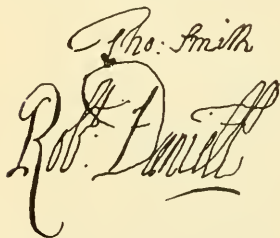 Tho: Smith
Robt. Daniell